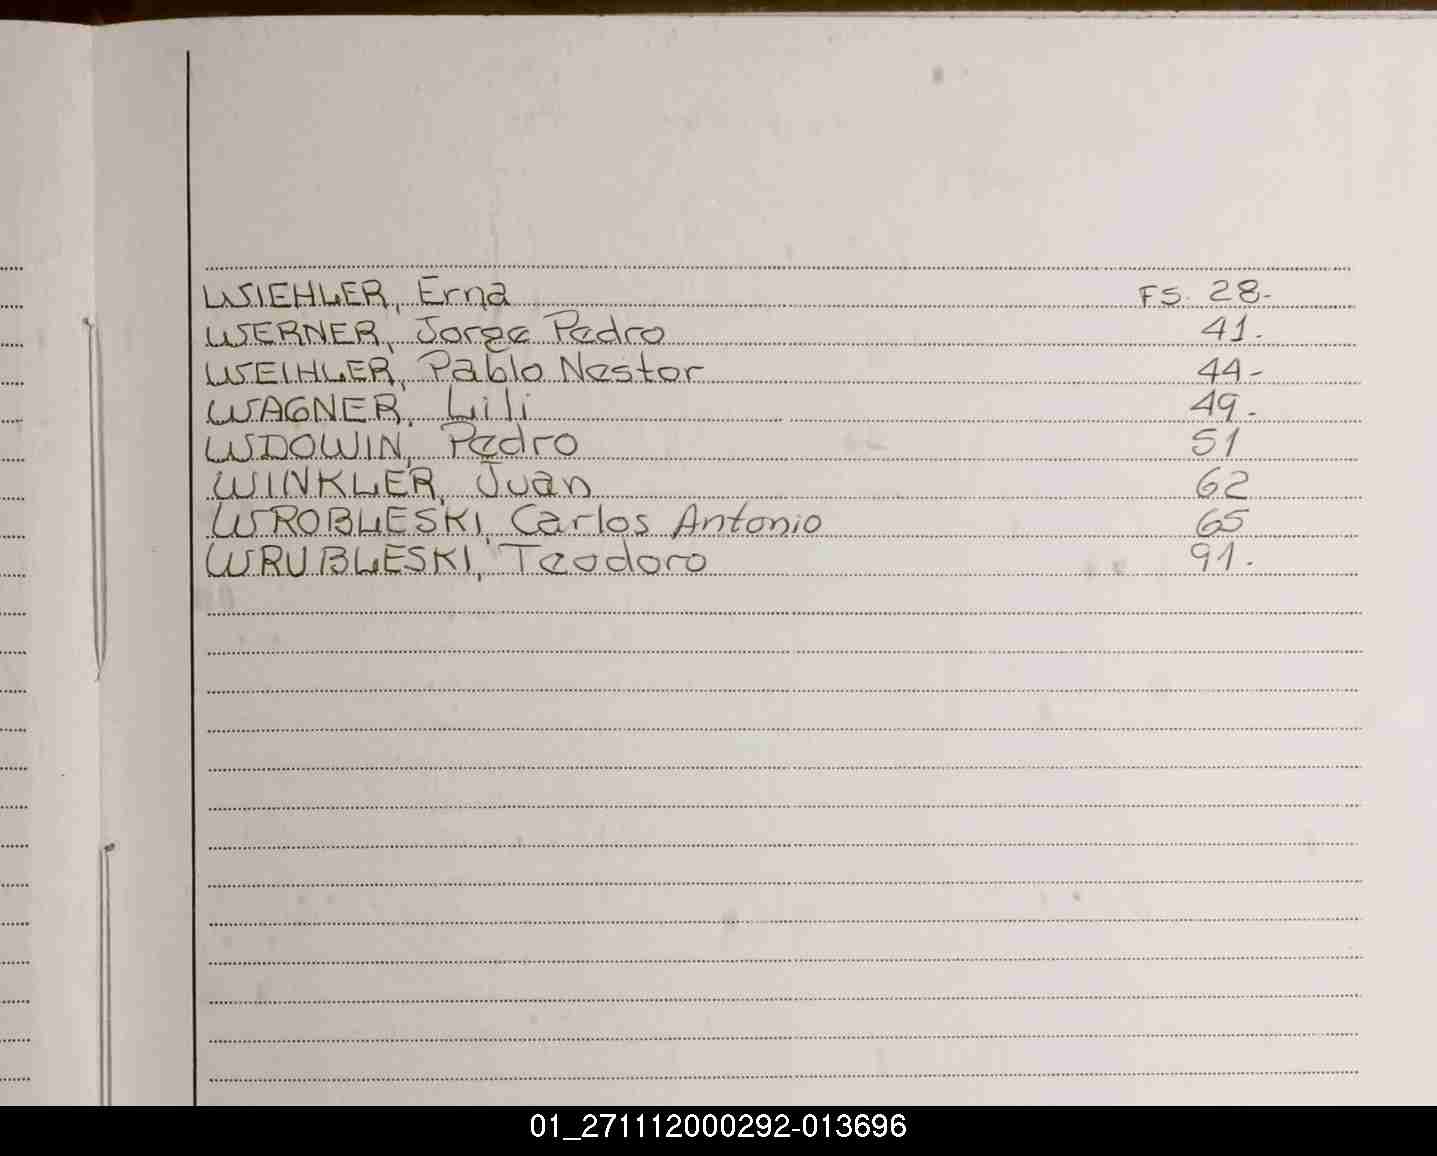 WIEHLER, Erna FS. 28.-
WERNER, Jorge Pedro 41.-
WEIHLER, Pablo Nestor 44-
WAGNER, Lili 49.-
WDOWIN, Pedro 51
WINKLER, Juan 62
WROBLESKI, Carlos Antonio 65
WRUBLESKI, Teodoro 91.-
01_271112000292-013696